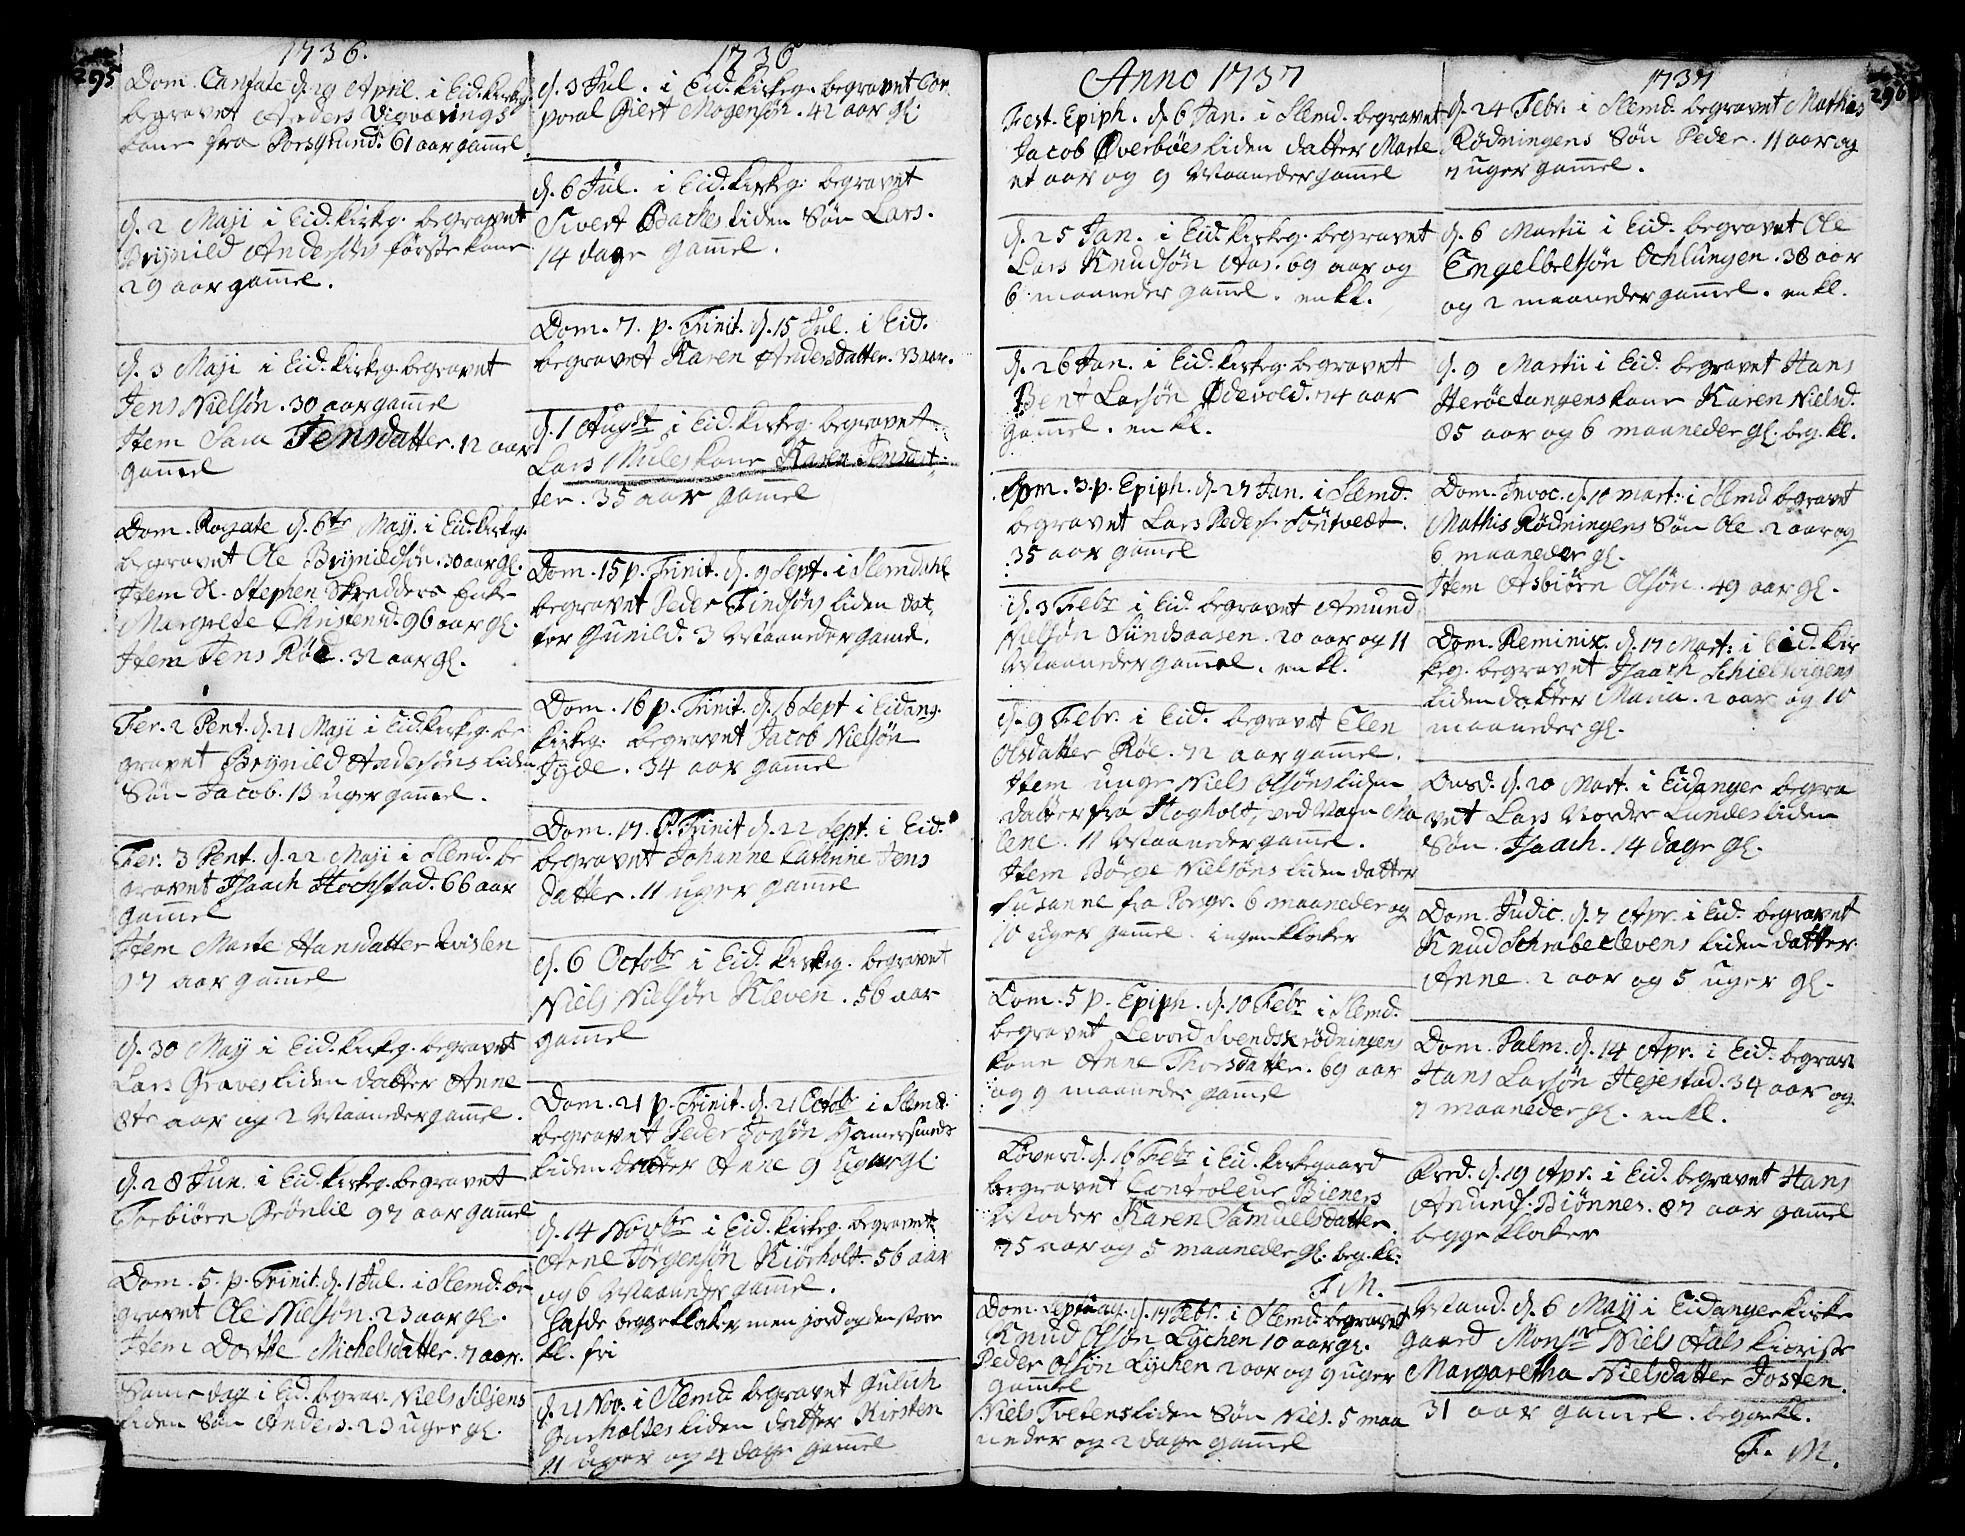 295
1736.
Dom. Cantate d. 29 April. i Eid. kirkeg.
begravet Anders Vigværings
kone fra Porsgrund. 61 aar gammel.
d. 2 Maji i Eid. kirkeg. begravet
Brynild Andersøns første kone
29 aar gammel.
d. 3 Maji i Eid. kirkeg. begravet
Jens Nielsøn. 30 aar gammel
Item Sara Jensdatter. 12 aar
gammel
Dom. Rogate d. 6te Maij. i Eid. kirkeg.
begravet Ole Brynildsøn. 30 aar gl.
Item Sl. Stephen Skredders Enke
Margrete Christensd. 96 aar gl.
Item Jens Röe. 32 aar gl.
Fer. 2 Pent. d. 21 Maji i Eid. kirkeg. be
gravet Brynild Andersøns liden
Søn Jacob. 13 uger gammel.
Fer. 3 Pent. d. 22 Maji i Slemd. be
gravet Isaach Hochstad. 66 aar
gammel
Item Marte Hansdatter Qvislen
97 aar gammel
d. 30 Maij i Eid. kirkeg. begravet
Lars Graves liden datter Anne
8te aar og 2 Maaneder gammel.
d. 28 Jun. i Eid. kirkeg. begravet
Torbiørn Grönlie 97 aar gammel
Dom. 5. p. Trinit. d. 1 Jul. i Slemd. be
gravet Ole Nielsøn. 23 aar gl.
Item Dorthe Michelsdatter. 7 aar.
Same dag i Eid. begrav. Niels Siljens
liden Søn Anders. 23 uger gl.
1736
d. 3 Jul. i Eid. kirkeg. begravet Cor
poral Giert Mogensøn. 42 aar gl.
d. 6 Jul. i Eid. kirkeg. begravet
Sivert Baches liden Søn Lars.
14 dage gammel.
Dom. 7. p. Trinit. d. 15 Jul. i Eid.
begravet Karen Andersdatter. 33 aar.
d. 1 Augst i Eid. kirkeg. begravet
Lars Miiles kone Karen Jensdat
ter. 35 aar gammel
Dom. 15 p. Trinit. d. 9 Sept. i Slemdahl
begravet Peder Findsøns liden dat
ter Gunild. 3 Maaneder gamel.
Dom. 16 p. Trinit. d. 16 Sept i Eidang.
kirkeg: begravet Jacob Nielsøn
Jyde. 34 aar gammel
Dom. 17. p. Trinit d. 22 Sept. i Eid.
begravet Johanne Cathrine Jens
datter. 11 uger gammel
d. 6 Octobr i Eid. kirkeg. begravet
Niels Nielsøn Kleven. 56 aar
gammel
Dom. 21 p. Trinit. d. 21 Octobr i Slemd.
begravet Peder Joesøn Hamersmeds
liden datter Anne 9 uger gl.
d. 14 Novbr i Eid. kirkeg. begravet
Arne Jörgensøn Kiörholt. 56 aar
og 6 Maaneder gammel.
Hafde begge klocker men jord og den store
kl. fri
d. 21 Nov. i Slemd begravet Gulich
Gurholtes liden datter Kirsten
11 uger og 4 dage gammel
296
Anno 1737
Fest. Epiph. d. 6 Jan. i Slemd. begravet
Jacob Överböes liden datter Marte
et aar og 9 Maaneder gammel
d. 25 Jan. i Eid. kirkeg. begravet
Lars Knudsøn Aas. 69 aar og
6 maaneder gammel. en kl.
d. 26 Jan. i Eid. kirkeg. begravet
Bent Larsøn Ödevold. 74 aar
gammel. en kl.
Dom. 3. p. Epiph. d. 27 Jan. i Slemd.
begravet Lars Peders. Söntvedt.
35 aar gammel
d. 3 Febr i Eid. begravet Amund
Nielsøn Sundsaasen. 20 aar og 11
Maaneder gammel. en kl.
d. 9 Febr. i Eid. begravet Elen
Olsdatter Röe. 72 aar gammel.
Item unge Niels Olsøns liden
datter fra Skogholt, ved Navn Ma
lene. 11 Maaneder gammel.
Item Börge Nielsøns liden datter
Susanne fra Porsgr. 6 maaneder og
10 uger gammel. ingen klocker
Dom. 5 p. Epiph. d. 10 Febr i Slemd.
begravet Levord Svends. Rödningens
kone Anne Thorsdatter. 69 aar
og 9 maaneder gammel
Löverd. d. 16 Febr i Eid. kirkegaard
begravet Controleur Bieners
Moder Karen Samuelsdatter
75 aar og 5 maaneder gl. beg. kl.
F. M.
Dom. Septuag. d. 17 Febr. i Slemd. begravet
Knud Olsøn Lychen 10 aar gl.
Peder Olsøn Lychen 2 aar og 9 uger
gammel
Niels Tvetens liden Søn Niels. 5 maa
neder og 2 dage gammel
1737
d. 24 Febr. i Slemd. begravet Mathis
Rödningens Søn Peder. 11 aar og
7 uger gammel.
d. 6 Martii i Eid. begravet Ole
Engelbeltsøn Ochlungen. 38 aar
og 2 maaneder gammel. en kl.
d. 9 Martii i Eid. begravet Hans
Herøetangens kone Karen Nielsd.
85 aar og 6 maaneder gl. beg. kl.
Dom. Invoc. d. 10 Mart. i Slemd begravet
Mathis Rödningens Søn Ole. 2 aar og
6 maaneder gl.
Item Asbiörn Olsøn. 49 aar gl.
Dom. Reminisc. d. 17 Mart: i Eid. kir
keg. begravet Isaach Schielsvigens
liden datter Maria. 2 aar og 10
maaneder gl.
Onsd. d. 20 Mart. i Eidanger begra
vet Lars Nordre Lundes liden
Søn. Isaach. 14 dage gl.
Dom. Judic. d. 7 Apr. i Eid. begravet
Knud Schrabeclevens liden datter
Anne. 2 aar og 5 uger gl.
Dom. Palm. d. 14 Apr. i Eid. begrav.
Hans Larsøn Hejestad. 34 aar og
7 maaneder gl. en kl.
Fred. d. 19 Apr. i Eid. begravet Hans
Amunds. Biönnes. 87 aar gammel
begge klocker
Mand. d. 6 Maij i Eidanger kirke
gaard Monsr Niels Aals kieriste
Margaretha Nielsdatter Josten.
31 aar gammel. begge kl.
F. M.